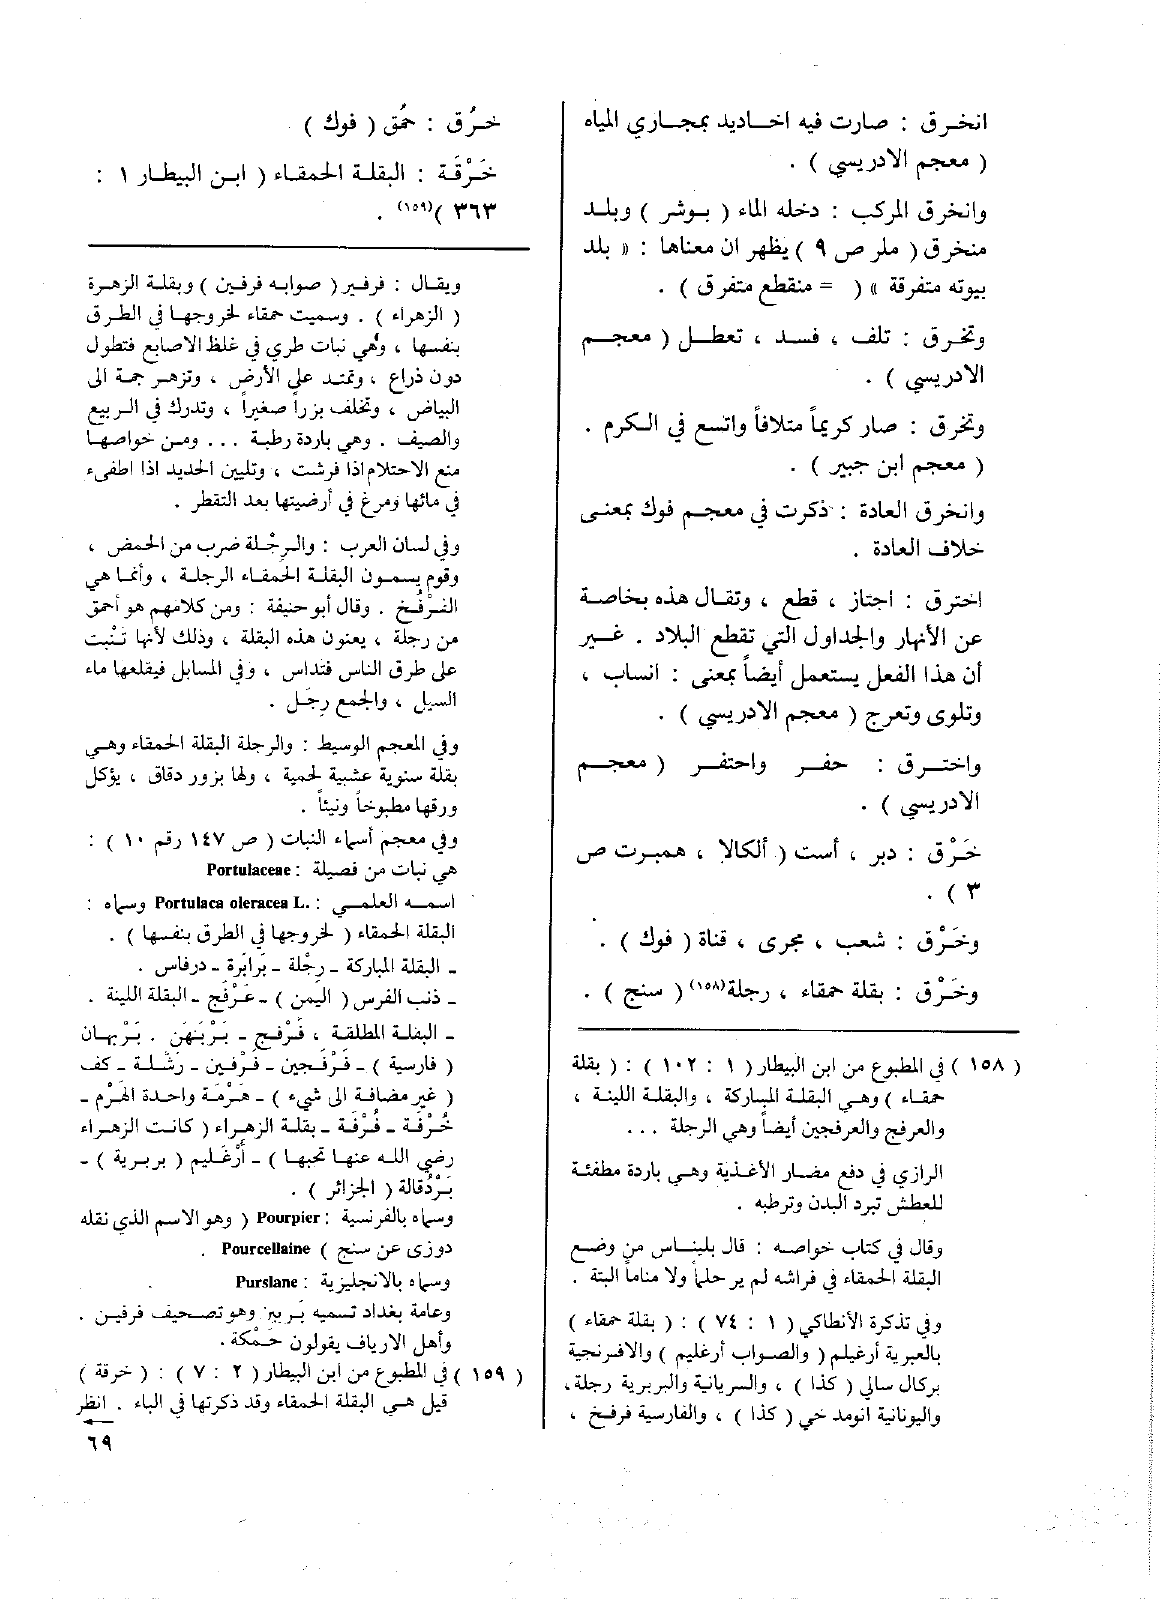 انخرق : صارت فيه اخاديد بمجاري المياه
( معجم الادريسي ) .
وانخرق المركب : دخله الماء ( بوشر ) وبلد
منخرق ( ملر ص ٩ ) يظهر ان معناها : « بلد
بيوته متفرقة » ( = منقطع متفرق ) .
وتخرق : تلف ، فسد ، تعطل ( معجم
الادريسي ) .
وتخرق : صار كريماً متلافاً واتسع في الكرم .
( معجم ابن جبير ) .
وانخرق العادة : ذكرت في معجم فوك بمعنى
خلاف العادة .
اخترق : اجتاز ، قطع ، وتقال هذه بخاصة
عن الأنهار والجداول التي تقطع البلاد . غير
أن هذا الفعل يستعمل أيضاً بمعنى : انساب ،
وتلوى وتعرج ( معجم الادريسي ) .
واخترق : حفر واحتفر ( معجم
الادريسي ) .
خَرْق : دبر ، أست ( ألكالا ، همبرت ص
٣ ) .
وخَرْق : شعب ، مجرى ، قناة ( فوك ) .
وخَرْق : بقلة حمقاء ، رجلة(١٥٨) ( سنج ) .
( ١٥٨ ) في المطبوع من ابن البيطار ( ١ : ١٠٢ ) : ( بقلة
حمقاء ) وهي البقلة المباركة ، والبقلة اللينة ،
والعرفج والعرفجين أيضاً وهي الرجلة ...
الرازي في دفع مضار الأغذية وهي باردة مطفئة
للعطش تبرد البدن وترطبه .
وقال في كتاب خواصه : قال بليناس من وضع
البقلة الحمقاء في فراشه لم ير حلماً ولا مناماً البتة .
وفي تذكرة الأنطاكي ( ١ : ٧٤ ) : ( بقلة حمقاء )
بالعبرية أرغيلم ( والصواب أرغليم ) والافرنجية
بركال سالي ( كذا ) ، والسريانية والبربرية رجلة،
واليونانية انومد خي ( كذا ) ، والفارسية فرفخ ،
خرُق : حمُق ( فوك )
خَرْقَة : البقلة الحمقاء ( ابن البيطار ١ :
٣٦٣ )(١٥٩) .
ويقال : فرفير ( صوابه فرفين ) وبقلة الزهرة
( الزهراء ) . وسميت حمقاء لخروجها في الطرق
بنفسها ، وهي نبات طري في غلظ الاصابع فتطول
دون ذراع ، وتمتد على الأرض ، وتزهر جمة الى
البياض ، وتخلف بزراً صغيراً ، وتدرك في الربيع
والصيف . وهي باردة رطبة ... ومن خواصها
منع الاحتلام اذا فرشت ، وتليين الحديد اذا اطفىء
في مائها ومرغ في أرضيتها بعد التقطر .
وفي لسان العرب : والرِجْلة ضرب من الحمض ،
وقوم يسمون البقلة الحمقاء الرجلة ، وأنما هي
الفَرْفَخ . وقال أبو حنيفة : ومن كلامهم هو أحمق
من رجلة ، يعنون هذه البقلة ، وذلك لأنها تَنْبت
على طرق الناس فتداس ، وفي المسايل فيقلعها ماء
السيل ، والجمع رِجَل .
وفي المعجم الوسيط : والرجلة البقلة الحمقاء وهي
بقلة سنوية عشبية لحمية ، ولها بزور دقاق ، يؤكل
ورقها مطبوخاً ونيئاً .
وفي معجم أسماء النبات ( ص ١٤٧ رقم ١٠ ) :
هي نبات من فصيلة : Portulaceae
اسمه العلمي : Portulaca oleracea L. وسماه :
البقلة الحمقاء ( لخروجها في الطرق بنفسها ) .
ـ البقلة المباركة ـ رِجْلة ـ بَرابَرة ـ درفاس .
ـ ذنب الفرس ( اليمن ) ـ عَرْفَج ـ البقلة اللينة .
ـ البقلة المطلقة ، فَرْفج ـ بَرْبَهَن . بَرْبهان
( فارسية ) ـ فَرْفَجين ـ فَرْفين ـ رَشْلة ـ كف
( غير مضافة الى شيء ) ـ هَرْمَة واحدة الهَرْم ـ
خُرْفَة ـ فُرْفَة ـ بقلة الزهراء ( كانت الزهراء
رضي الله عنها تحبها ) ـ أرْغَليم ( بربرية ) ـ
بَرْدُقالة ( الجزائر ) .
وسماه بالفرنسية : Pourpier ( وهو الاسم الذي نقله
دوزى عن سنج ) Pourcellaine .
وسماه بالانجليزية : Purslane .
وعامة بغداد تسميه بَربين وهو تصحيف فرفين .
وأهل الارياف يقولون حَمْكة .
( ١٥٩ ) في المطبوع من ابن البيطار ( ٢ : ٧ ) : ( خرقة )
قيل هي البقلة الحمقاء وقد ذكرتها في الباء . انظر
٦٩